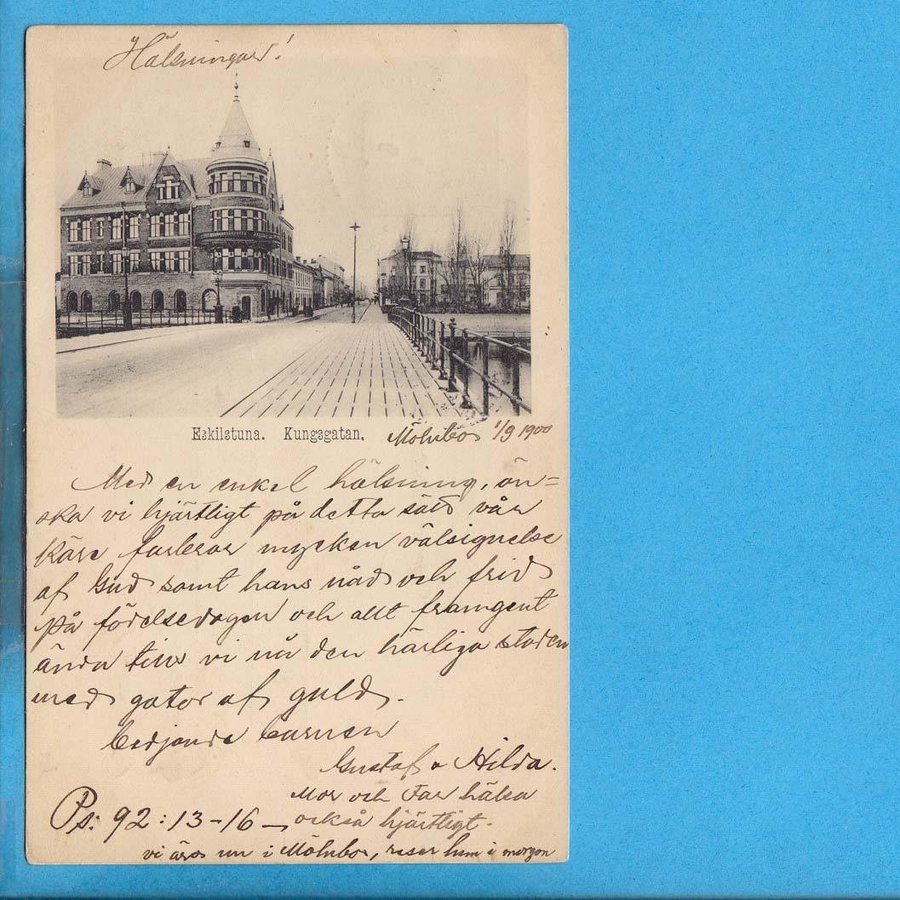 Hälsningar!
Eskilstuna. Kungsgatan.
Mölnbo 1/9 1900
Med en enkel hälsning, ön=
ska vi hjärtligt på detta sätt vår
Käre farbror mycken välsignelse
af Gud samt hans nåd och frid
på födelsedagen och allt framgent
ända tills vi nå den härliga staden
med gator af guld.
Bedjande barnen
Gustaf o Hilda.
Mor och Far hälsa
också hjärtligt.
Ps: 92:13-16 –
vi äro nu i Mölnbo, reser hem i morgon